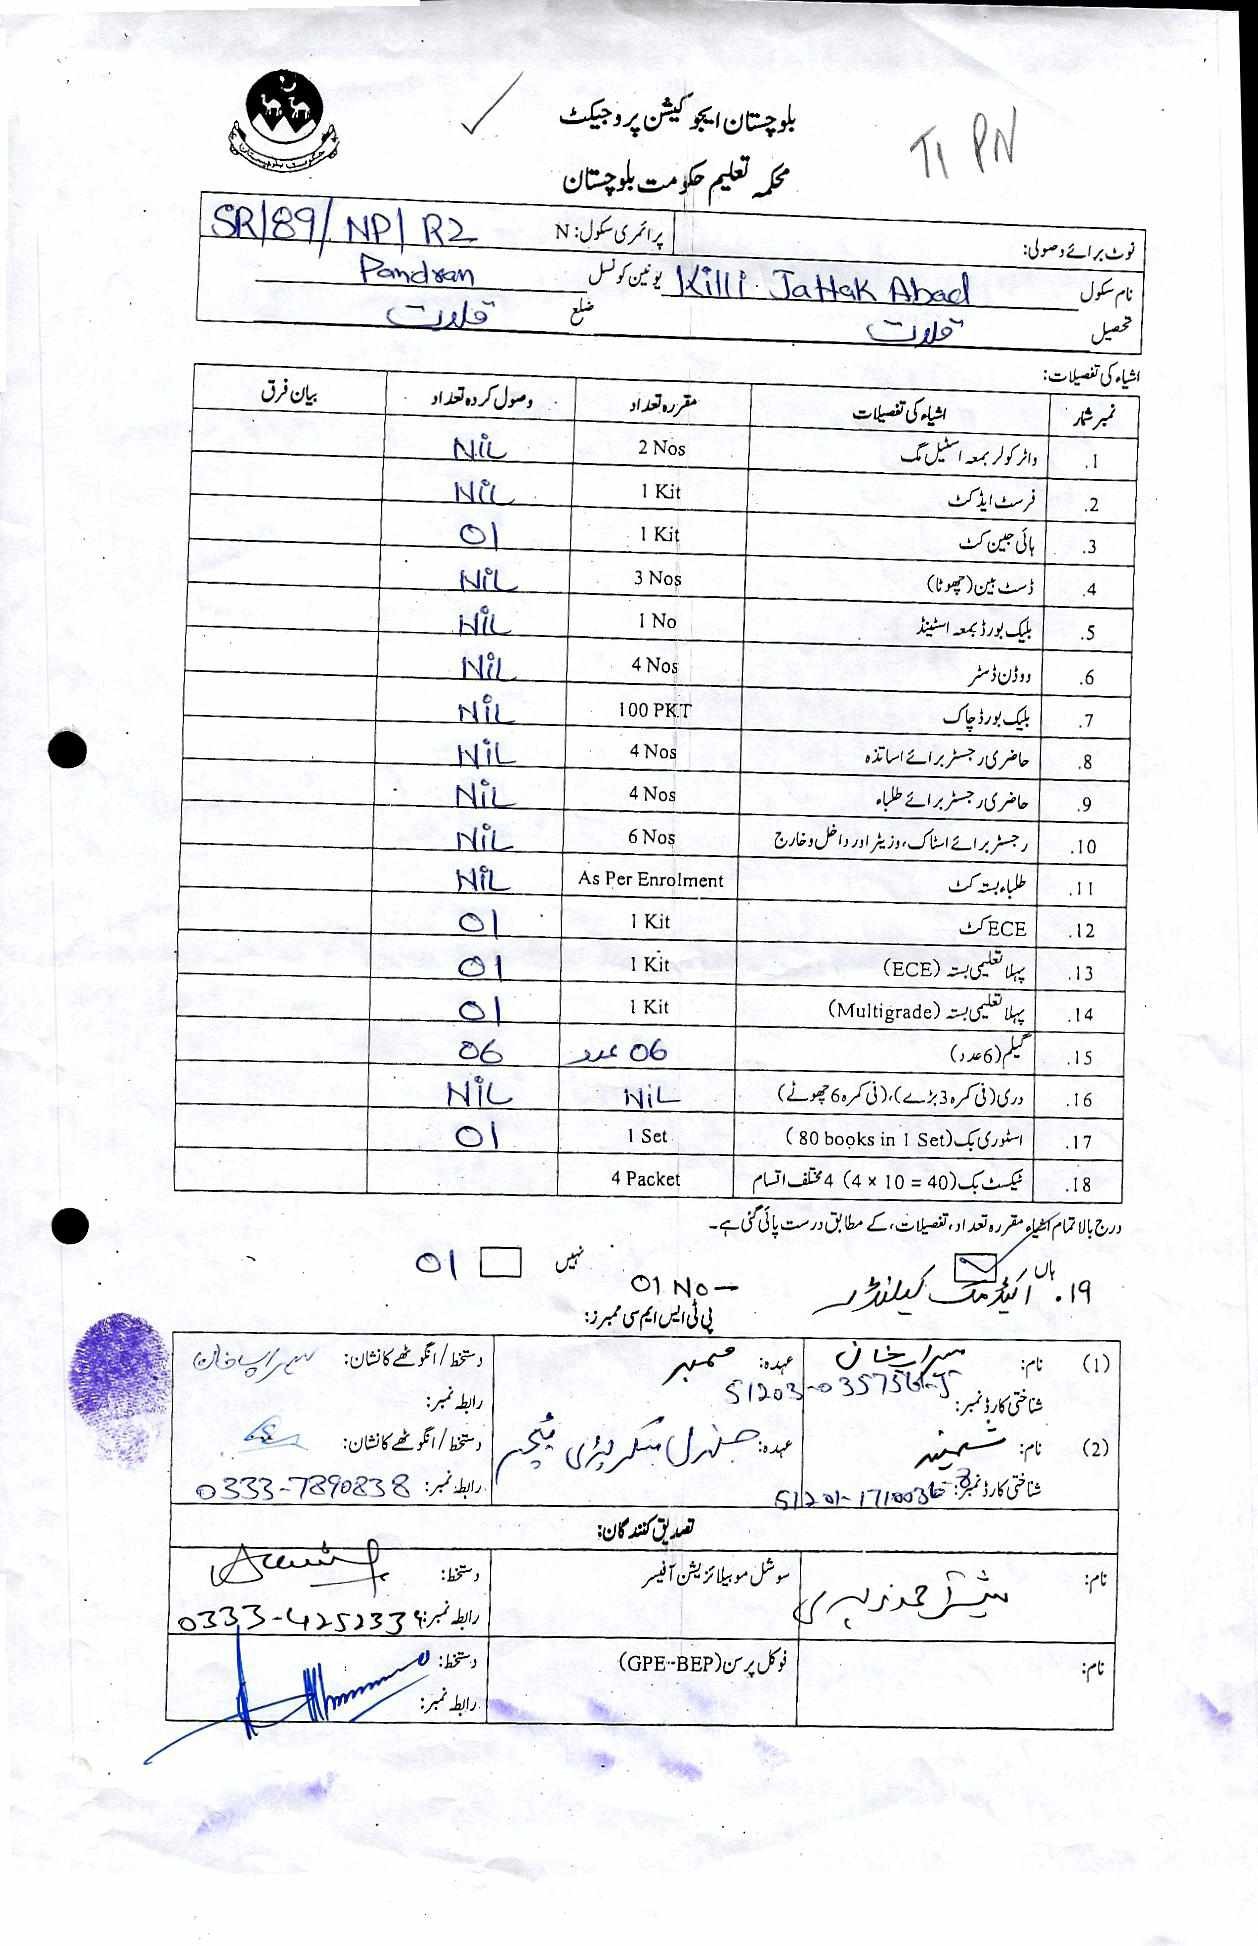 بلوچستان ایجوکیشن پروجیکٹ
TI PN
محکمہ تعلیم حکومت بلوچستان
حکومت بلوچستان
نوٹ برائے وصولی: پرائمری سکول: N SR/89/NP/R2
نام سکول Killi Jattak Abad یونین کونسل Pandran
تحصیل قلات ضلع قلات
اشیاء کی تفصیلات:
نمبر شمار اشیاء کی تفصیلات مقررہ تعداد وصول کردہ تعداد بیان فرق
.1 واٹر کولر بمعہ اسٹیل مگ 2 Nos NiL
.2 فرسٹ ایڈ کٹ 1 Kit NiL
.3 ہائی جین کٹ 1 Kit 01
.4 ڈسٹ بین (چھوٹا) 3 Nos NiL
.5 بلیک بورڈ بمعہ اسٹینڈ 1 No NiL
.6 ووڈن ڈسٹر 4 Nos NiL
.7 بلیک بورڈ چاک 100 PKT NiL
.8 حاضری رجسٹر برائے اساتذہ 4 Nos NiL
.9 حاضری رجسٹر برائے طلباء 4 Nos NiL
.10 رجسٹر برائے اسٹاک، وزیٹر اور داخل و خارج 6 Nos NiL
.11 طلباء بستہ کٹ As Per Enrolment NiL
.12 ECE کٹ 1 Kit 01
.13 پہلا تعلیمی بستہ (ECE) 1 Kit 01
.14 پہلا تعلیمی بستہ (Multigrade) 1 Kit 01
.15 گیلم (6 عدد) 06 عدد 06
.16 دری (فی کمرہ 3 بڑے)، (فی کمرہ 6 چھوٹے) NiL NiL
.17 اسٹوری بک (80 books in 1 Set) 1 Set 01
.18 ٹیکسٹ بک (4 × 10 = 40) 4 مختلف اقسام 4 Packet
درج بالا تمام اشیاء مقررہ تعداد، تفصیلات، کے مطابق درست پائی گئی ہے۔
ہاں نہیں
۱۹. اکیڈمک کیلنڈر 01 No - 01
پی ٹی ایس ایم سی ممبرز:
(1) نام: سہراب خان عہدہ: ممبر دستخط/انگوٹھے کا نشان: سہراب خان
شناختی کارڈ نمبر: رابطہ نمبر:
(2) نام: ثمینہ عہدہ: جنرل سیکریٹری ٹیچر دستخط/انگوٹھے کا نشان:
شناختی کارڈ نمبر: رابطہ نمبر: 0333-7890838
تصدیق کنندگان:
نام: سوشل موبیلائزیشن آفیسر دستخط:
رابطہ نمبر: 0333-4252339
نام: فوکل پرسن (GPE-BEP) دستخط:
رابطہ نمبر: